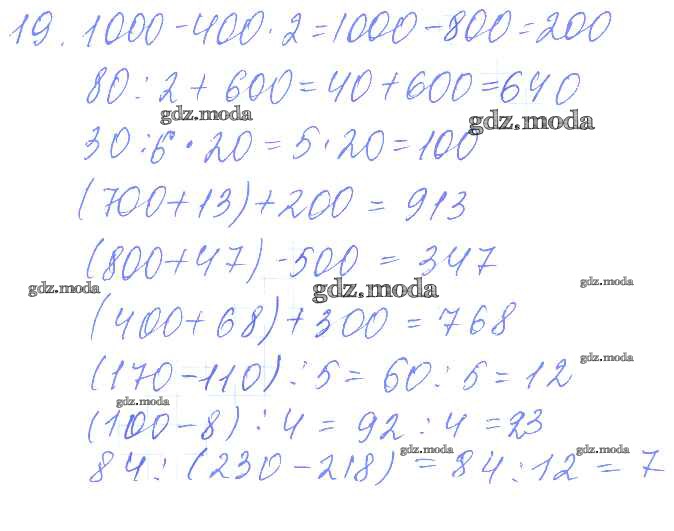 19. 1000-400·2=1000-800=200
80:2+600=40+600=640
gdz.moda
gdz.moda
30:6·20=5·20=100
(700+13)+200=913
(800+47)-500=347
gdz.moda
gdz.moda
gdz.moda
(400+68)+300=768
gdz.moda
(170-110):5=60:5=12
gdz.moda
(100-8):4=92:4=23
gdz.moda
gdz.moda
84:(230-218)=84:12=7